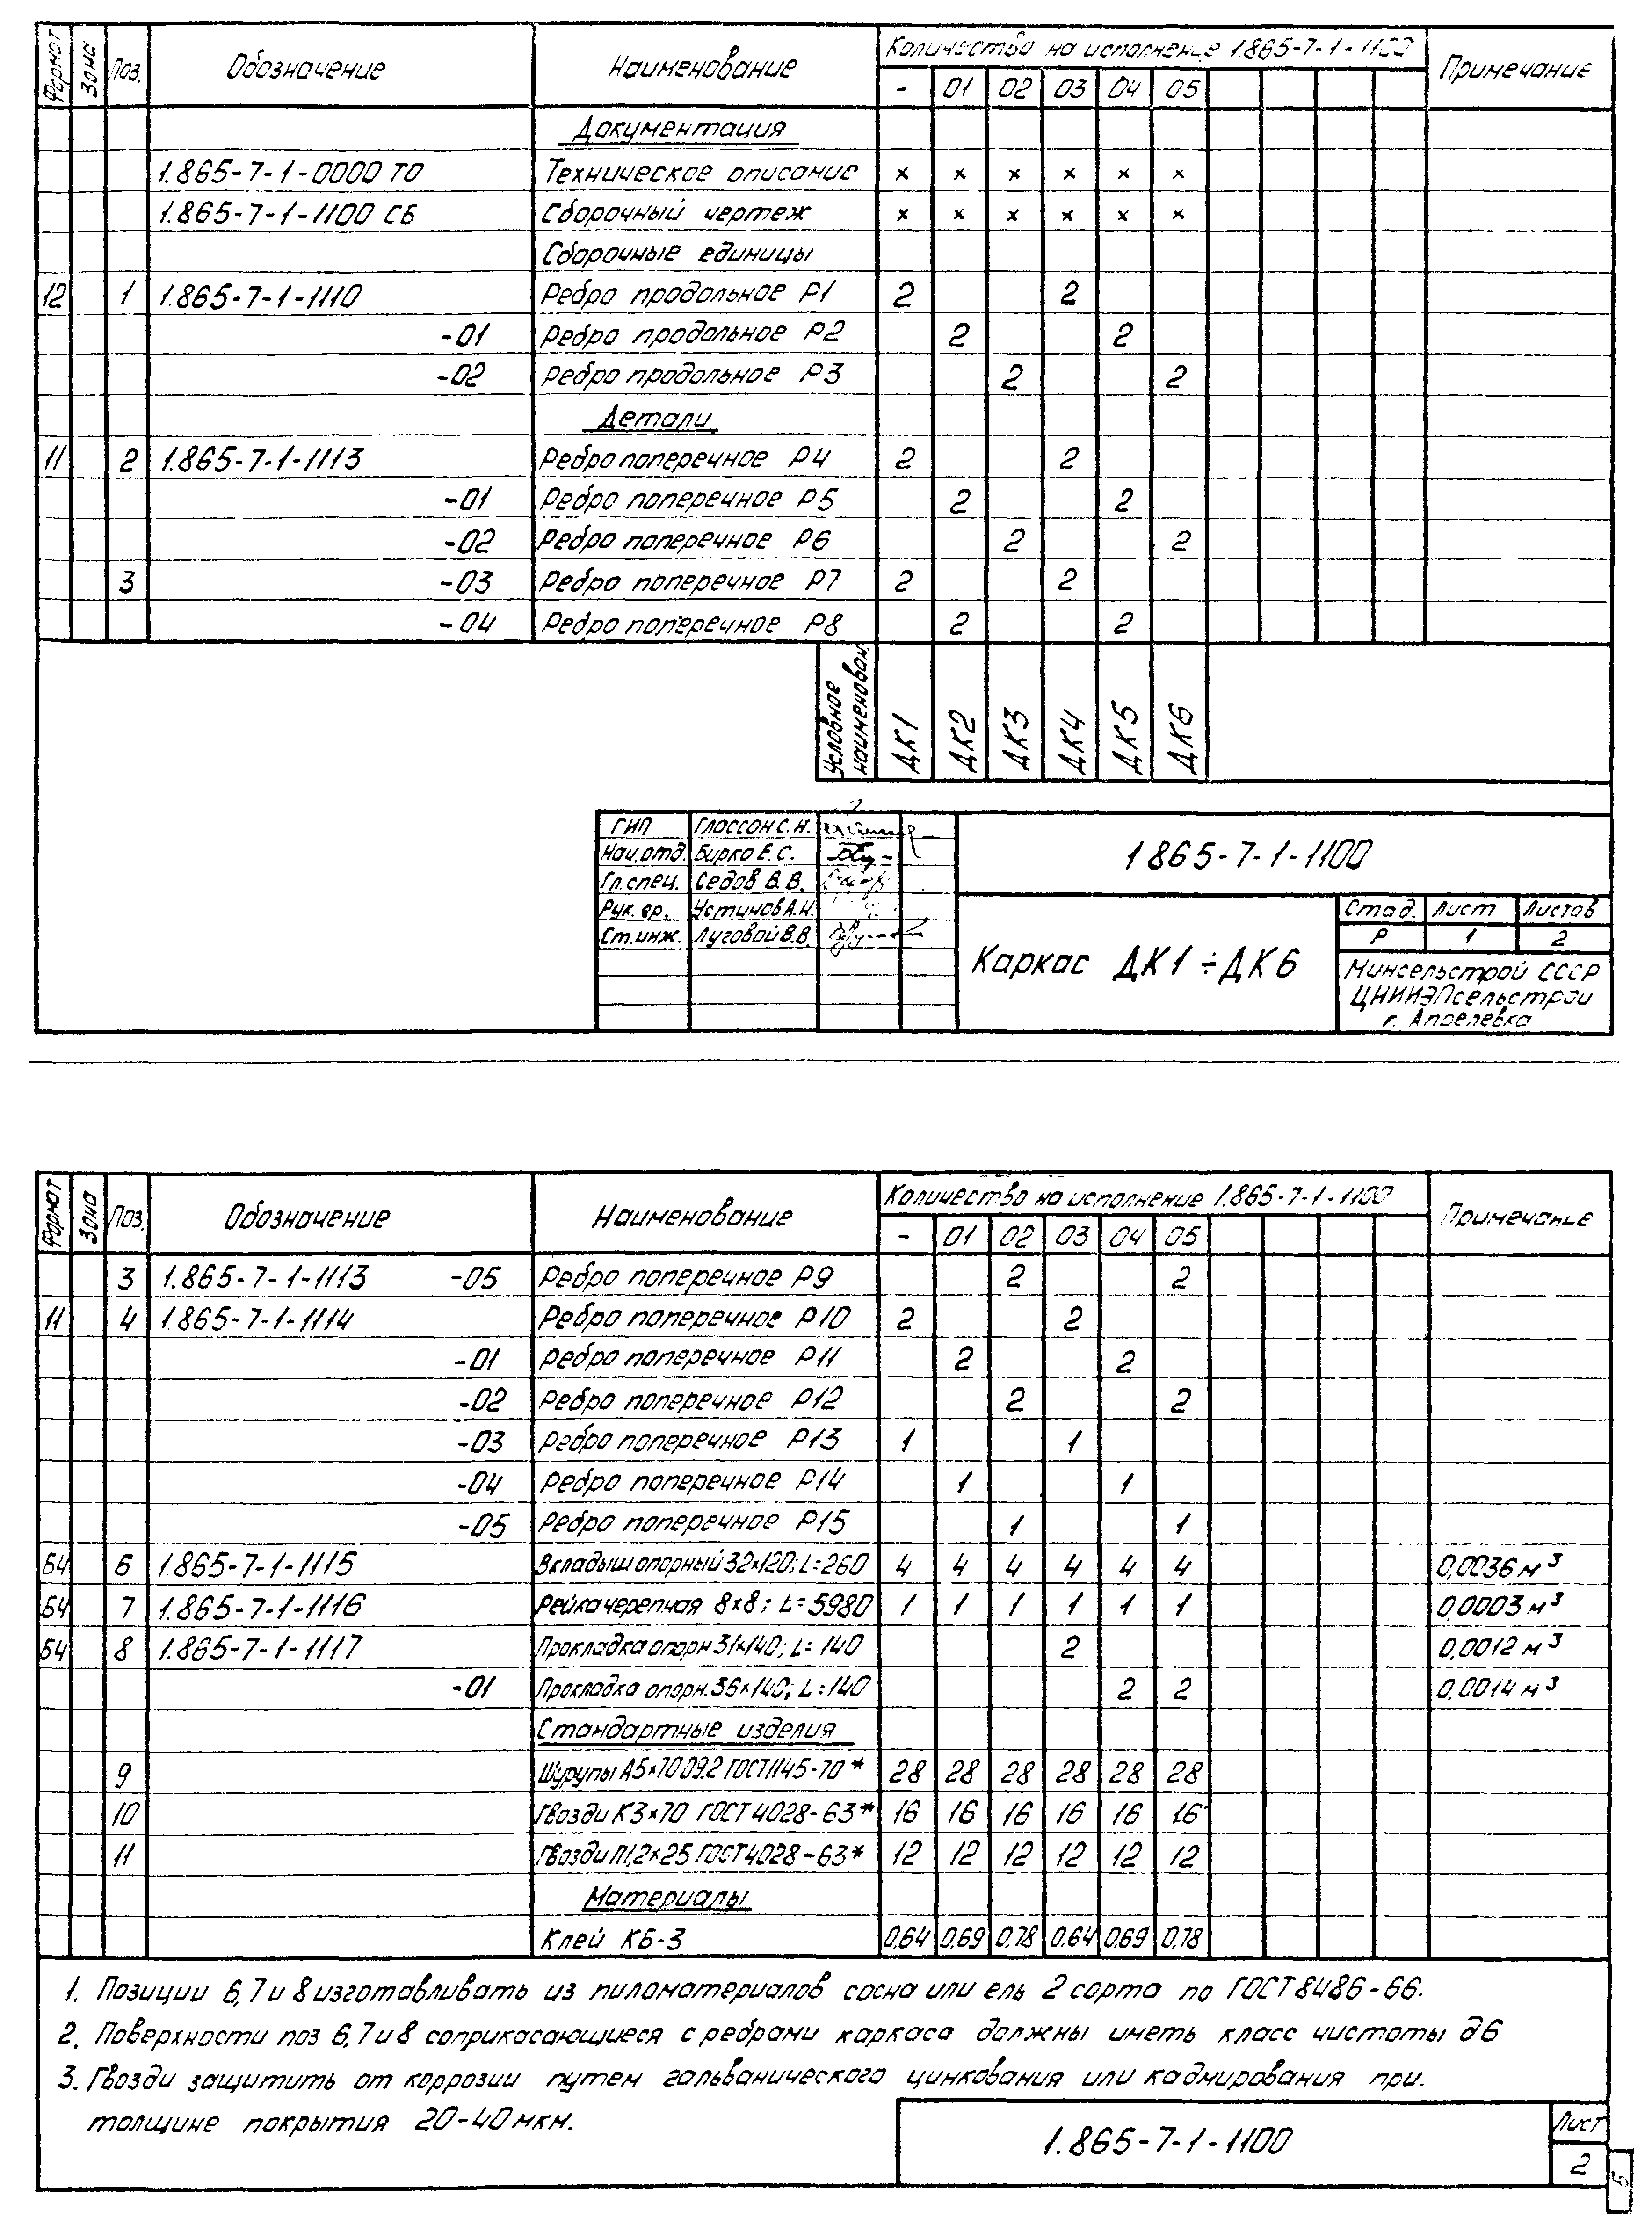 Формат Зона Поз. Обозначение Наименование Количество на исполнение 1.865-7-1-1100 Примечание
- 01 02 03 04 05
Документация
1.865-7-1-0000 ТО Техническое описание × × × × × ×
1.865-7-1-1100 СБ Сборочный чертеж × × × × × ×
Сборочные единицы
12 1 1.865-7-1-1110 Ребро продольное Р1 2 2
-01 Ребро продольное Р2 2 2
-02 Ребро продольное Р3 2 2
Детали
11 2 1.865-7-1-1113 Ребро поперечное Р4 2 2
-01 Ребро поперечное Р5 2 2
-02 Ребро поперечное Р6 2 2
3 -03 Ребро поперечное Р7 2 2
-04 Ребро поперечное Р8 2 2
Условное наименован. ДК1 ДК2 ДК3 ДК4 ДК5 ДК6
ГИП Глоссон С.Н.
Нач.отд. Бирко Е.С.
Гл.спец. Седов В.В.
Рук.гр. Устинов А.Н.
Ст.инж. Луговой В.В.
1865-7-1-1100
Каркас ДК1÷ДК6
Стад. Лист Листов
Р 1 2
Минсельстрой СССР
ЦНИИЭПсельстрой
г. Апрелевка
Формат Зона Поз. Обозначение Наименование Количество на исполнение 1.865-7-1-1100 Примечание
- 01 02 03 04 05
3 1.865-7-1-1113 -05 Ребро поперечное Р9 2 2
11 4 1.865-7-1-1114 Ребро поперечное Р10 2 2
-01 Ребро поперечное Р11 2 2
-02 Ребро поперечное Р12 2 2
-03 Ребро поперечное Р13 1 1
-04 Ребро поперечное Р14 1 1
-05 Ребро поперечное Р15 1 1
Б4 6 1.865-7-1-1115 Вкладыш опорный 32×120; L=260 4 4 4 4 4 4 0,0036 м³
Б4 7 1.865-7-1-1116 Рейка черепная 8×8; L=5980 1 1 1 1 1 1 0,0003 м³
Б4 8 1.865-7-1-1117 Прокладка опорн 31×140; L=140 2 0,0012 м³
-01 Прокладка опорн. 36×140; L=140 2 2 0,0014 м³
Стандартные изделия
9 Шурупы А5×70 09.2 ГОСТ 1145-70* 28 28 28 28 28 28
10 Гвозди К3×70 ГОСТ 4028-63* 16 16 16 16 16 16
11 Гвозди П1,2×25 ГОСТ 4028-63* 12 12 12 12 12 12
Материалы
Клей КБ-3 0,64 0,69 0,78 0,64 0,69 0,78
1. Позиции 6,7 и 8 изготавливать из пиломатериалов сосна или ель 2 сорта по ГОСТ 8486-66.
2. Поверхности поз 6,7 и 8 соприкасающиеся с ребрами каркаса должны иметь класс чистоты д6
3. Гвозди защитить от коррозии путем гальванического цинкования или кадмирования при.
толщине покрытия 20-40 мкм.
1.865-7-1-1100
Лист
2
5